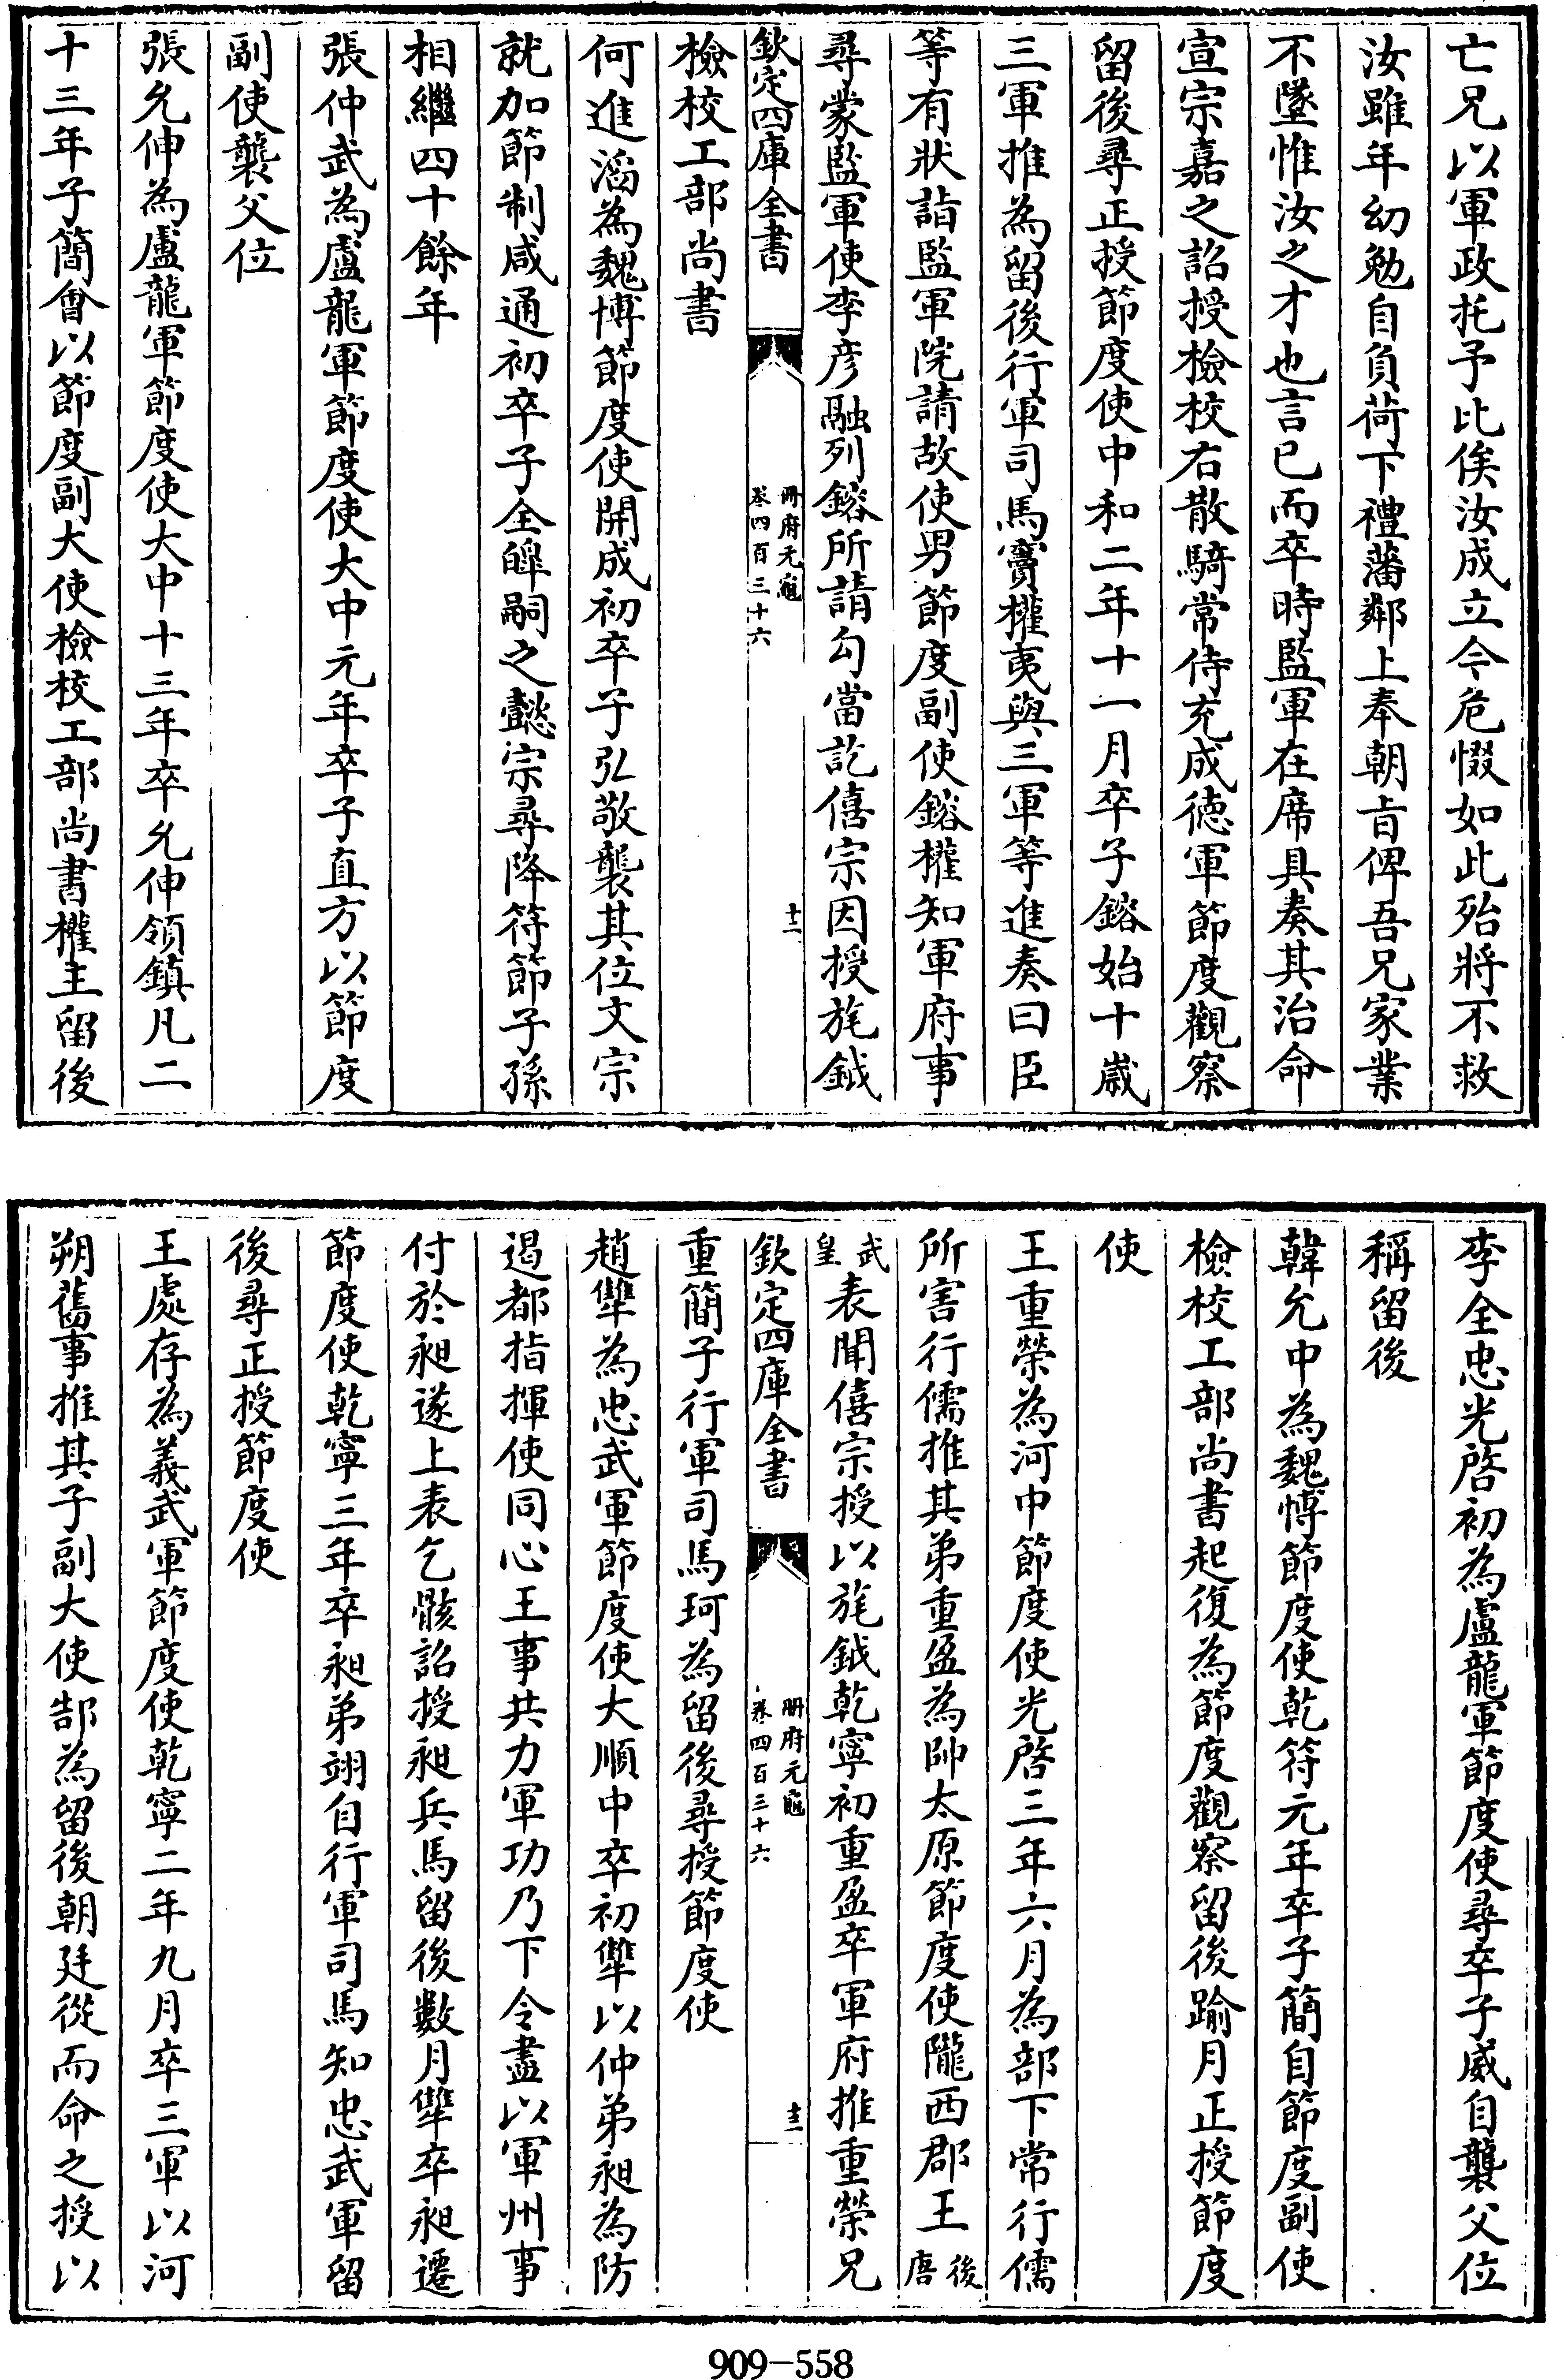 亡兄以軍政托予比俟汝成立今危惙如此殆將不救
汝雖年幼勉自負荷下禮藩鄰上奉朝旨俾吾兄家業
不墜惟汝之才也言已而卒時監軍在席具奏其治命
宣宗嘉之詔授檢校右散騎常侍充成德軍節度觀察
留後尋正授節度使中和二年十一月卒子鎔始十歲
三軍推為留後行軍司馬竇權夷與三軍等進奏曰臣
等有狀詣監軍院請故使男節度副使鎔權知軍府事
尋蒙監軍使李彦融列鎔所請勾當訖僖宗因授旄鉞
欽定四庫全書
冊府元龜
卷四百三十六
十二
檢校工部尚書
何進滔為魏博節度使開成初卒子弘敬襲其位文宗
就加節制咸通初卒子全皥嗣之懿宗尋降符節子孫
相繼四十餘年
張仲武為盧龍軍節度使大中元年卒子直方以節度
副使襲父位
張允伸為盧龍軍節度使大中十三年卒允伸領鎮凡二
十三年子簡會以節度副大使檢校工部尚書權主留後
李全忠光啓初為盧龍軍節度使尋卒子威自襲父位
稱留後
韓允中為魏博節度使乾符元年卒子簡自節度副使
檢校工部尚書起復為節度觀察留後踰月正授節度
使
王重榮為河中節度使光啓三年六月為部下常行儒
所害行儒推其弟重盈為帥太原節度使隴西郡王後唐
武皇表聞僖宗授以旄鉞乾寧初重盈卒軍府推重榮兄
欽定四庫全書
冊府元龜
卷四百三十六
十三
重簡子行軍司馬珂為留後尋授節度使
趙犨為忠武軍節度使大順中卒初犨以仲弟昶為防
遏都指揮使同心王事共力軍功乃下令盡以軍州事
付於昶遂上表乞骸詔授昶兵馬留後數月犨卒昶遷
節度使乾寧三年卒昶弟珝自行軍司馬知忠武軍留
後尋正授節度使
王處存為義武軍節度使乾寧二年九月卒三軍以河
朔舊事推其子副大使郜為留後朝廷從而命之授以
909-558